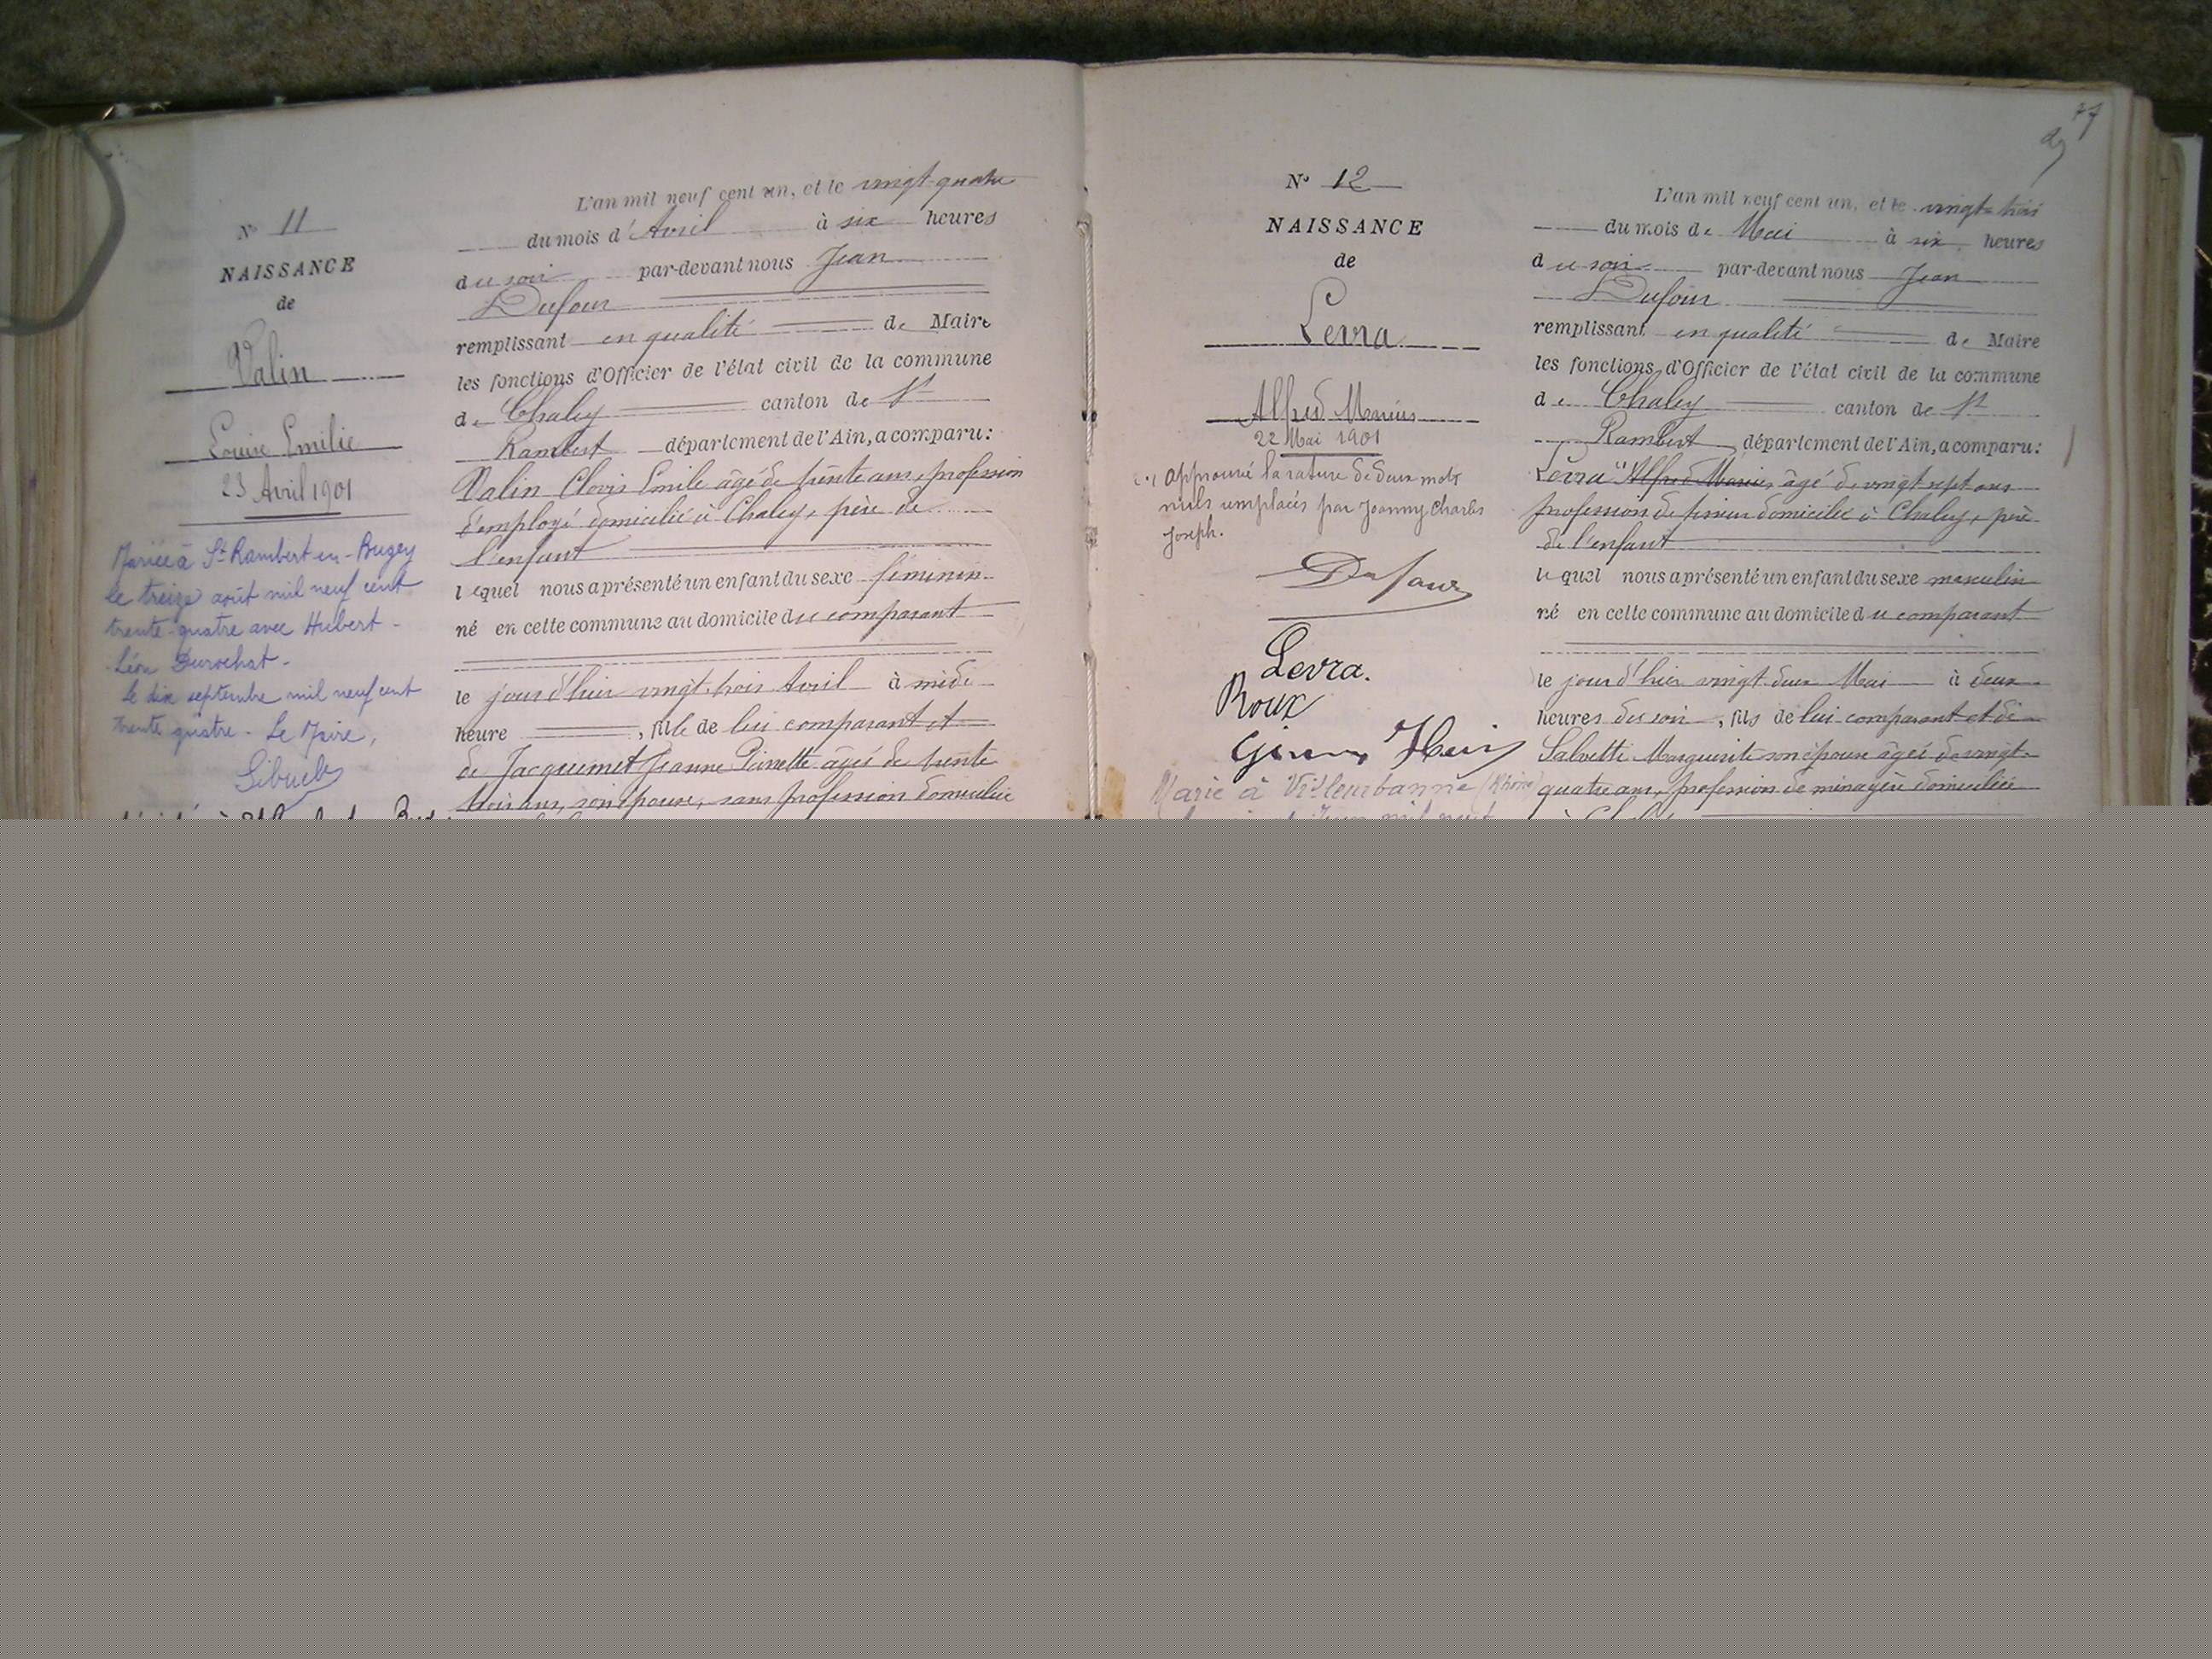 N° 11
NAISSANCE
de
Valin
Louise Emilie
23 Avril 1901
Mariée à St Rambert-en-Bugey
le treize août mil neuf cent
trente-quatre avec Hubert-
Léon Durochat.
le dix septembre mil neuf cent
trente quatre. Le Maire,
L'an mil neuf cent un, et le vingt-quatre
du mois d'Avril à six heures
du soir par-devant nous Jean
Dufour
remplissant en qualité de Maire
les fonctions d'Officier de l'état civil de la commune
de Chaley canton de St
Rambert département de l'Ain, a comparu:
Valin Clovis Emile âgé de trente ans, profession
d'employé domicilié à Chaley, père de
l'enfant
lequel nous a présenté un enfant du sexe féminin
né en cette commune au domicile du comparant
le jour d'hier vingt-trois Avril à midi
heure , fille de lui comparant et
de Jacquemet Jeanne Pierrette âgée de trente
trois ans, son épouse, sans profession domiciliée
N° 12
NAISSANCE
de
Levra
Alfred Marius
22 Mai 1901
(1) Approuvé la rature de deux mots
nuls remplacés par Joanny Charles
Joseph.
Dufour
Levra.
Roux
Marié à Villeurbanne (Rhône)
L'an mil neuf cent un, et le vingt-trois
du mois de Mai à six heures
du soir par-devant nous Jean
Dufour
remplissant en qualité de Maire
les fonctions d'Officier de l'état civil de la commune
de Chaley canton de St
Rambert département de l'Ain, a comparu:
Levra Alfred Marius, âgé de vingt sept ans
profession de domicilié à Chaley, père
de l'enfant
lequel nous a présenté un enfant du sexe masculin
né en cette commune au domicile du comparant
le jour d'hier vingt-deux Mai à deux
heures du soir, fils de lui comparant et de
Salvetti Marguerite son épouse âgée de vingt-
quatre ans, profession de ménagère domiciliée